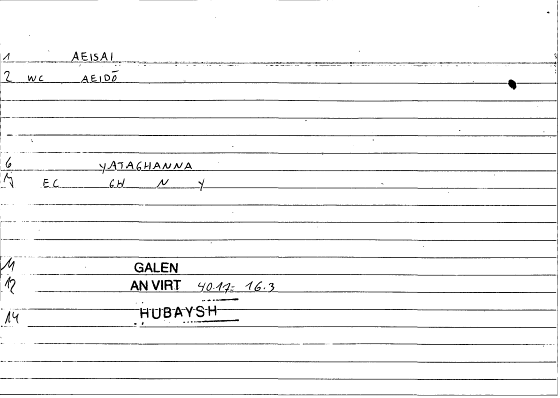 1 AEISAI
2 WC AEIDŌ
6 YATAGHANNA
7 EC GH N Y
11 GALEN
12 AN VIRT 40.17= 16.3
14 HUBAYSH